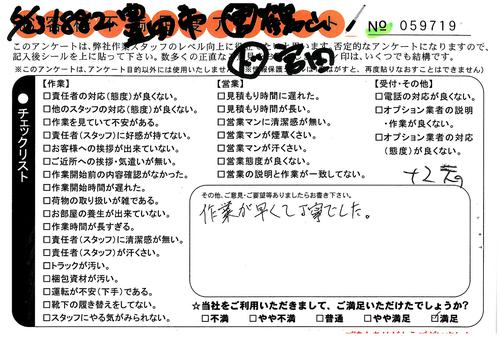 No 059719
このアンケートは、弊社作業スタッフのレベル向上に
否定的なアンケートになりますので、
記入後シールを上に貼って下さい。数多くの正直な
印は、いくつでも結構です。
※このアンケートは、アンケート目的以外には使用いたしません
がすと、再度貼りなおすことはできません)
チェックリスト
【作業】
□責任者の対応(態度)が良くない。
□他のスタッフの対応(態度)が良くない。
□作業を見ていて不安がある。
□責任者(スタッフ)に好感が持てない。
□お客様への挨拶が出来ていない。
□ご近所への挨拶・気遣いが無い。
□作業開始前の内容確認がなかった。
□作業開始時間が遅れた。
□荷物の取り扱いが雑である。
□お部屋の養生が出来ていない。
□作業時間が長すぎる。
□責任者(スタッフ)に清潔感が無い。
□責任者(スタッフ)が汗くさい。
□トラックが汚い。
□梱包資材が汚い。
□運転が不安(下手)である。
□靴下の履き替えをしてない。
□スタッフにやる気がみられない。
【営業】
□見積もり時間に遅れた。
□見積もり時間が長い。
□営業マンに清潔感が無い。
□営業マンが煙草くさい。
□営業マンが汗くさい。
□営業態度が良くない。
□営業の説明と作業が一致してない。
【受付・その他】
□電話の対応が良くない。
□オプション業者の説明
・作業が良くない。
□オプション業者の対応
(態度)が良くない。
その他、ご意見・ご要望等ありましたらお書き下さい。
作業が早くて丁寧でした。
☆当社をご利用いただきまして、ご満足いただけたでしょうか?
□不満 □やや不満 □普通 □やや満足 ☑満足